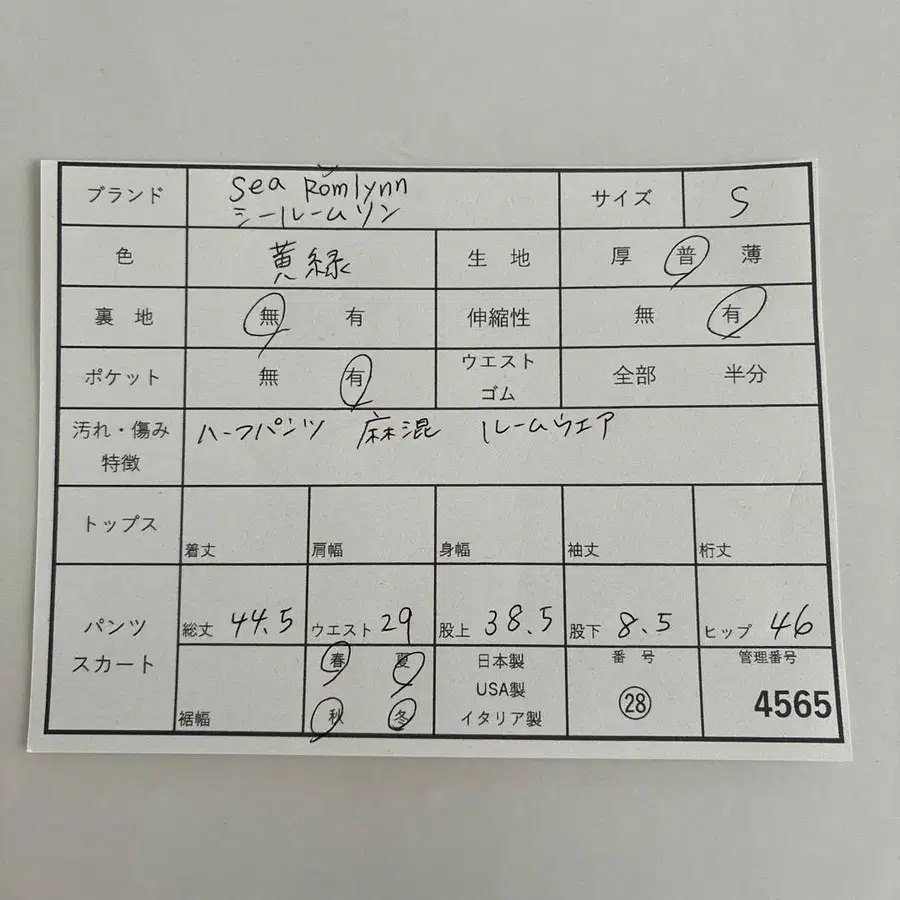 ブランド sea Romlynn サイズ S
シールームリン
色 黄緑 生地 厚 普 薄
裏地 無 有 伸縮性 無 有
ポケット 無 有 ウエスト 全部 半分
ゴム
汚れ・傷み ハーフパンツ 麻混 ルームウエア
特徴
トップス 着丈 肩幅 身幅 袖丈 裄丈
パンツ 総丈 44.5 ウエスト 29 股上 38.5 股下 8.5 ヒップ 46
スカート 春 夏 日本製 番号 管理番号
USA製
裾幅 秋 冬 イタリア製 28 4565